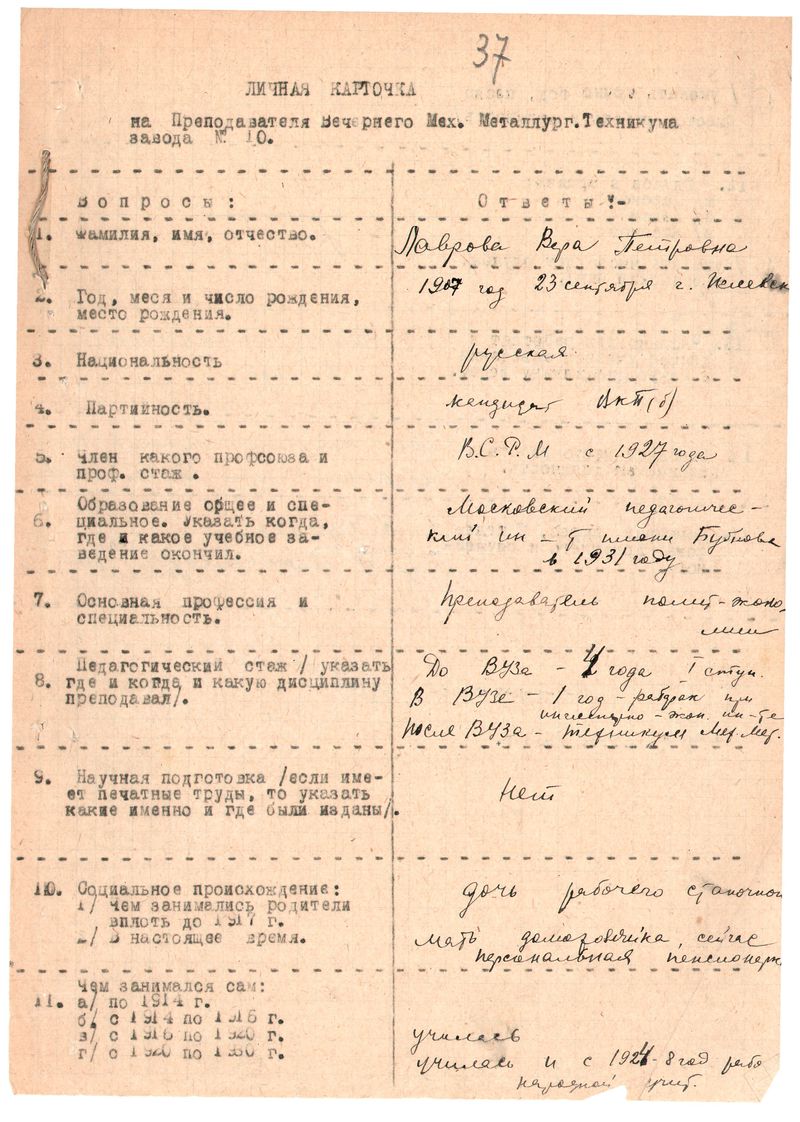 37
ЛИЧНАЯ КАРТОЧКА
на Преподавателя Вечернего Мех. Металлург.Техникума
завода № 10.
Вопросы: Ответы:-
1. Фамилия, имя, отчество. Лаврова Вера Петровна
2. Год, меся и число рождения, 1907 год 23 сентября г.
место рождения.
3. Национальность русская
4. Партийность. кандидат ВКП(б)
5. Член какого профсоюза и В.С.Р.М с 1927 года
проф. стаж .
Образование общее и спе- Московский педагогичес-
6. циальное. Указать когда, кий ин-т имени Бубнова
где и какое учебное за- в 1931 году
ведение окончил.
7. Основная профессия и преподаватель полит-эконо-
специальность. мии
Педагогический стаж / указать До ВУЗа - 4 года I ступ.
8. где и когда и какую дисциплину В ВУЗе - 1 год - рабфак при
преподавал/. инженерно-экон. ин-те
после ВУЗа - техникум Мех.Мет.
9. Научная подготовка /если име- Нет
ет печатные труды, то указать
какие именно и где были изданы/.
10. Социальное происхождение: дочь рабочего
1/ Чем занимались родители
вплоть до 1917 г.
2/ В настоящее время. мать домохозяйка, сейчас
персональная
Чем занимался сам:
11. а/ по 1914 г.
б/ с 1914 по 1918 г.
в/ с 1918 по 1920 г. училась
г/ с 1920 по 1930 г. училась и с 1924-8 год
народной учит.